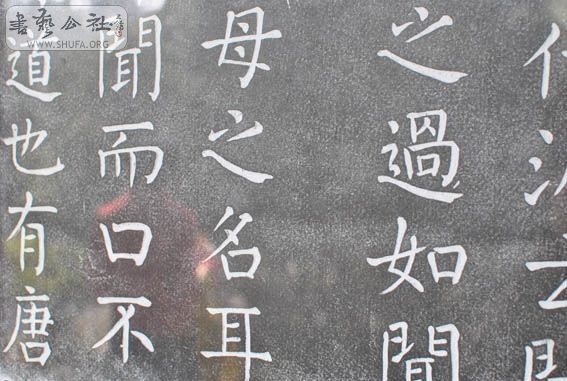 云
之過如聞
母之名耳
聞而口不
道也有唐
書藝公社
WWW.SHUFA.ORG